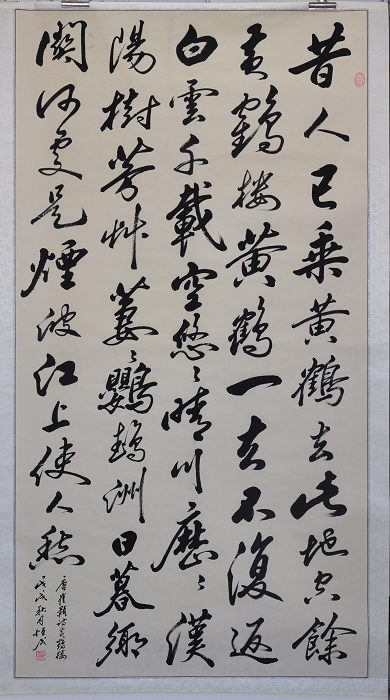 昔人已乘黄鶴去此地空餘
黄鶴楼黄鶴一去不復返
白雲千載空悠々晴川歷々漢
陽樹芳艸萋々鸚鵡洲日暮鄉
關何處是煙波江上使人愁
唐崔顥詩黄鶴楼
戊戌秋月